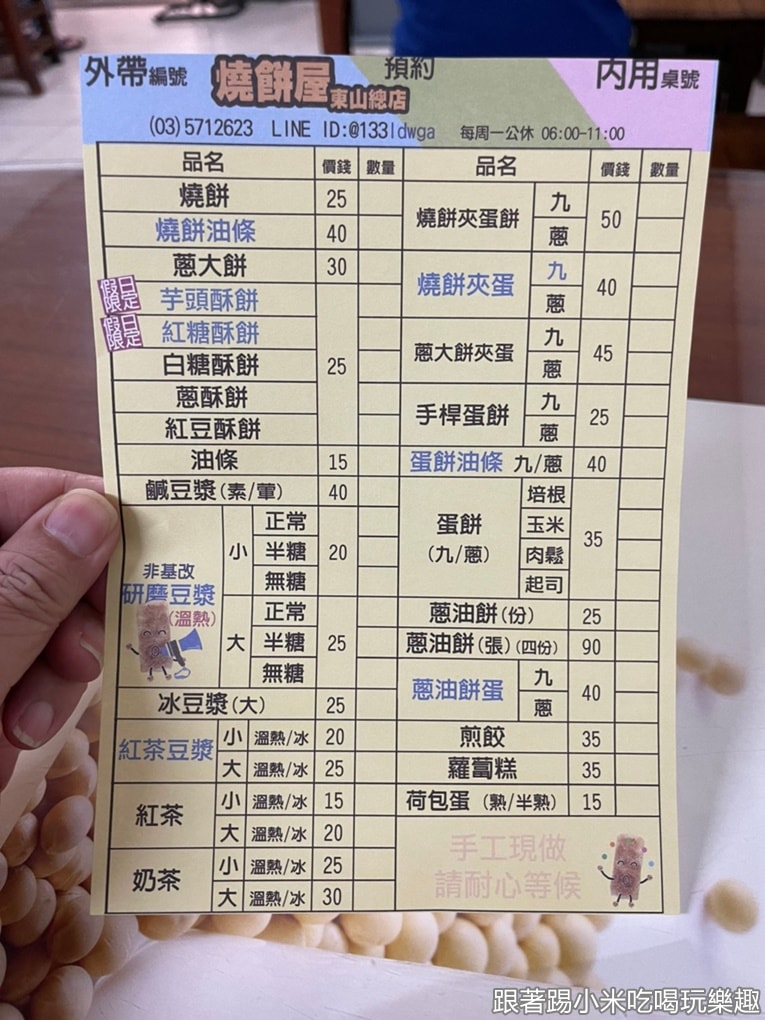 外帶編號 燒餅屋東山總店 預約 內用桌號
(03)5712623 LINE ID:@133ldwga 每周一公休 06:00-11:00
品名 價錢 數量
燒餅 25
燒餅油條 40
蔥大餅 30
假日限定 芋頭酥餅
假日限定 紅糖酥餅
白糖酥餅 25
蔥酥餅
紅豆酥餅
油條 15
鹹豆漿(素/葷) 40
非基改
研磨豆漿
(溫熱)
小 正常
半糖 20
無糖
大 正常
半糖 25
無糖
冰豆漿(大) 25
紅茶豆漿 小 溫熱/冰 20
大 溫熱/冰 25
紅茶 小 溫熱/冰 15
大 溫熱/冰 20
奶茶 小 溫熱/冰 25
大 溫熱/冰 30
品名 價錢 數量
燒餅夾蛋餅 九 50
蔥
燒餅夾蛋 九 40
蔥
蔥大餅夾蛋 九 45
蔥
手桿蛋餅 九 25
蔥
蛋餅油條 九/蔥 40
蛋餅
(九/蔥)
培根
玉米 35
肉鬆
起司
蔥油餅(份) 25
蔥油餅(張)(四份) 90
蔥油餅蛋 九 40
蔥
煎餃 35
蘿蔔糕 35
荷包蛋 (熟/半熟) 15
手工現做
請耐心等候
跟著踢小米吃喝玩樂趣